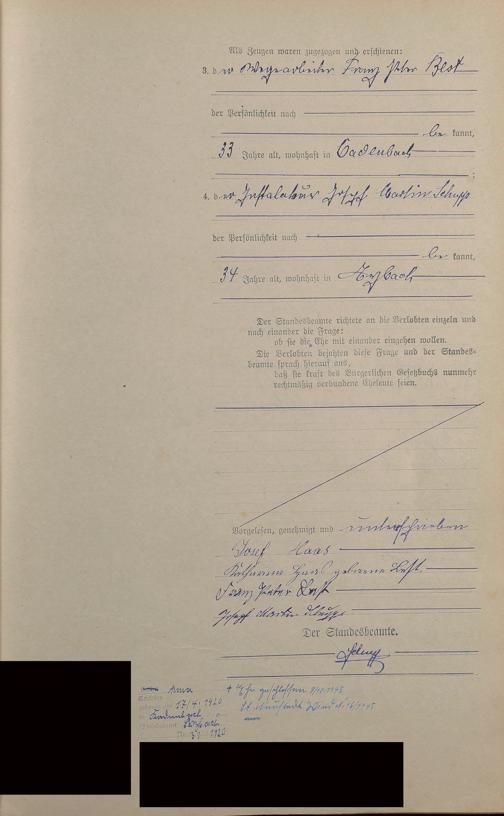 Als Zeugen waren zugezogen und erschienen:
3. der Wegearbeiter Franz Peter Best
der Persönlichkeit nach
be kannt,
33 Jahre alt, wohnhaft in Cadenbach
;
4. der Instalatör Josef Martin Schupp
der Persönlichkeit nach
be kannt,
34 Jahre alt, wohnhaft in Arzbach
Der Standesbeamte richtete an die Verlobten einzeln und
nach einander die Frage:
ob sie die Ehe mit einander eingehen wollen.
Die Verlobten bejahten diese Frage und der Standes-
beamte sprach hierauf aus,
daß sie kraft des Bürgerlichen Gesetzbuchs nunmehr
rechtmäßig verbundene Eheleute seien.
Vorgelesen, genehmigt und unterschrieben
Josef Haas
Katharina Haas geborene Best
Franz Peter Best
Josef Martin Schupp
Der Standesbeamte.
Anna
17/4 1920
1920